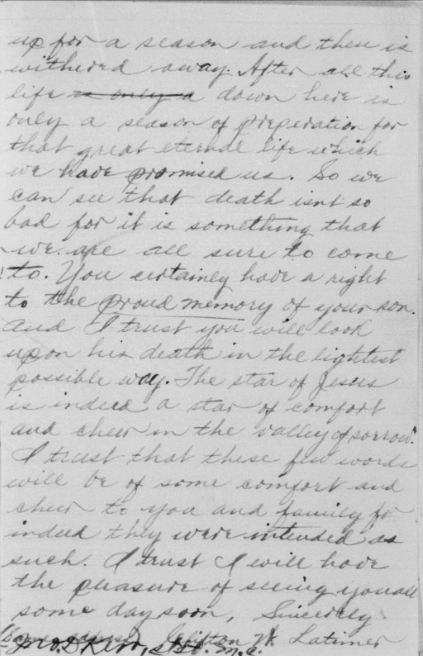 up for a season and then is
withered away. After all this
life is only a down here is
only a season of preperation for
that great eternal life which
we have promised us. So we
can see that death isnt so
bad for it is something that
we are all sure to come
to. You certainley have a right
to the proud memory of your son.
And I trust you will look
upon his death in the lightest
possible way. The star of Jesus
is indeed a star of comfort
and cheer in the valley of sorrow.
I trust that these few words
will be of some comfort and
cheer to you and family for
indeed they were intended as
such. I trust I will have
the pleasure of seeing you all
some day soon, Sincerely
Clifton W. Latimer